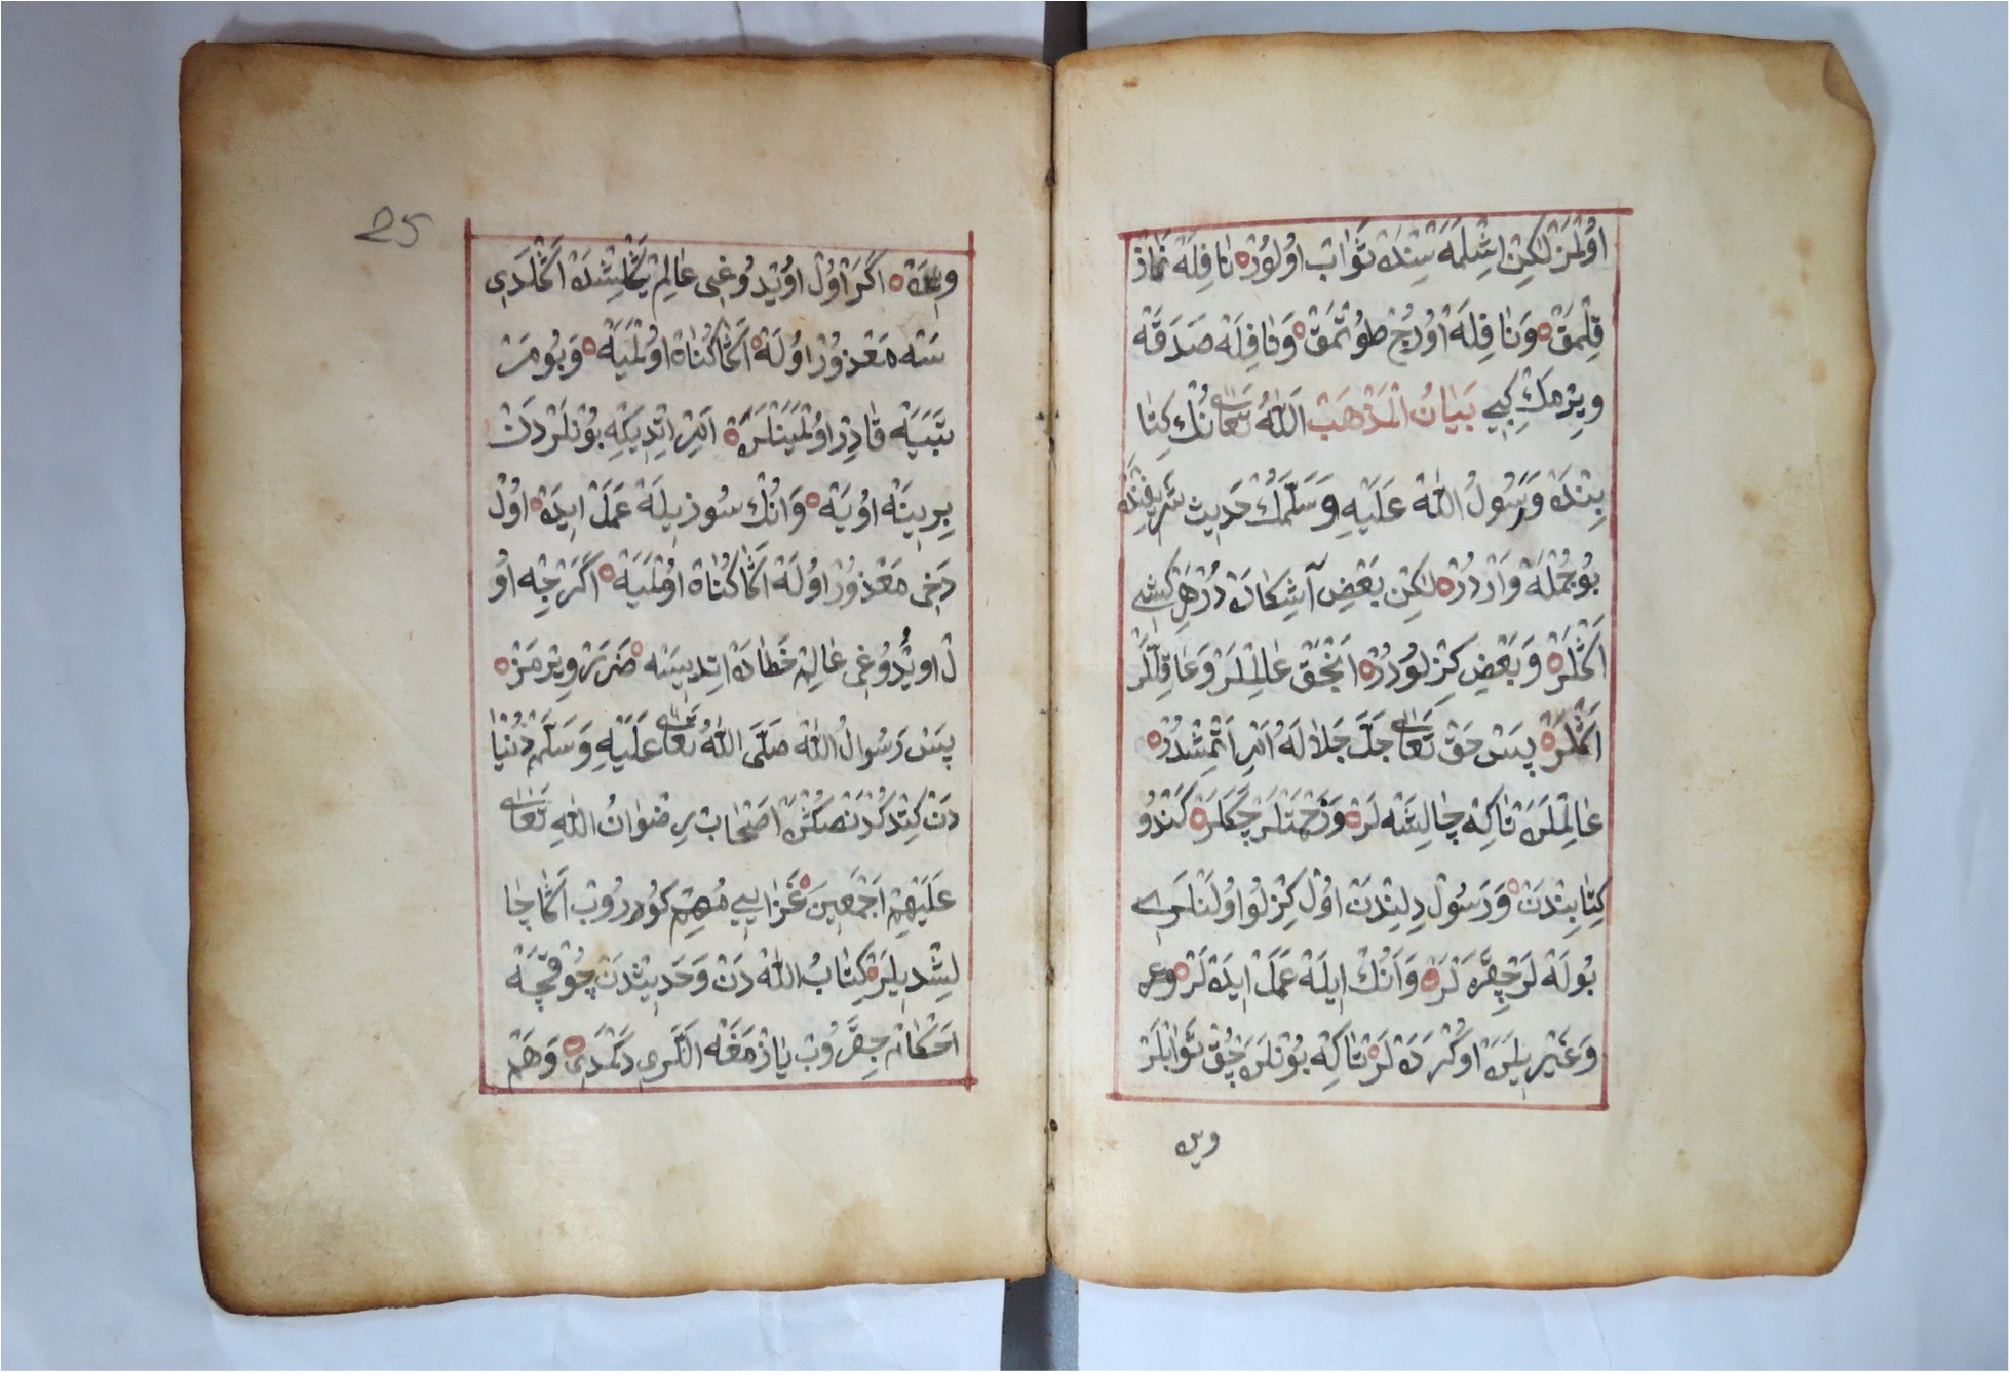 اُولْمَزْ لٰكِنْ اِشْلَمَه سِنْدَه ثَوَابْ اُولُوْرْ نَافِلَه نَمَازْ
قِلْمَقْ وَنَافِلَه اُورُجْ طُوتْمَقْ وَنَافِلَه صَدَقَه
وِيرْمَكْ كِبِي بَيَانُ الْمَذْهَبْ اَللّٰهُ تَعَالٰى نُكْ كِتَا
بِنْدَه وَرَسُولُ اللّٰه عَلَيْهِ وَسَلَّمَكْ حَدِيث شَرِيفِنْدَه
بُو جُمْلَه وَارْدُرْ لٰكِنْ بَعْضِ آشِكَارَه دُرْ هَرْ كِشِي
اَكْلَرْ وَبَعْضِ كِزْلُودُرْ اَنْجَقْ عَالِمْلَرْ وَعَاقِلْلَرْ
اَكْلَرْ پَسْ حَقْ تَعَالٰى جَلَّ جَلَالَهُ اَمْرْ اَتْمِشْدُرْ
عَالِمْلَرَه تَاكِه چَالِشَه لَرْ وَزَحْمَتْلَرْ چَكَلَرْ كَنْدُو
كِتَابِنْدَنْ وَرَسُولْ دِلِنْدَنْ اُولْ كِزْلُو اُولَنْلَرِى
بُولَه لَرْ چِقَرَه لَرْ وَاَنُكْ اِيلَه عَمَلْ اِيدَه لَرْ وعر
وَغَيْرِيلَرَه اُوكْرَدَه لَرْ تَاكِه بُونْلَرَه چُوقْ ثَوَابْلَرْ
ويره
ويريله اَكَرْ اُولْ اُويْدُوغِى عَالِمْ يَكْلِشْدَه اَكْلَدِى
سَه مَعْذُورْ اُولَه اَكَا كُنَاه اُولْمَيَه وَبُو مَرْ
تَبَيَه قَادِرْ اُولْمَيَنْلَرَه اَمْرْ اِتْدِيكِه بُونْلَرْدَنْ
بِرِينَه اُويَه وَاَنُكْ سُوزِيلَه عَمَلْ اِيدَه اُولْ
دَخِى مَعْذُورْ اُولَه اَكَا كُنَاه اُولْمَيَه اَكَرْچِه اُو
لْ اُويْدُوغِى عَالِمْ خَطَا دَه اِتْدِيسَه ضَرَرْ وِيرْمَزْ
پَسْ رَسُولُ اللّٰه صَلَّى اللّٰهُ تَعَالٰى عَلَيْهِ وَسَلَّمْ دُنْيَا
دَنْ كِتْدِكْدَنْصُكْرَه اَصْحَابْ رِضْوَانُ اللّٰهِ تَعَالٰى
عَلَيْهِمْ اَجْمَعِينَ غَزَايِي مُهِمْ كُورُوبْ اَكَا چَا
لِشْدِيلَرْ كِتَابُ اللّٰه دَنْ وَحَدِيثْدَنْ چُوقْجَه
اَحْكَامْ چِقَرُوبْ يَازْمَغَه اَلْلَرِى دَكْمَدِى وَهَمْ
25